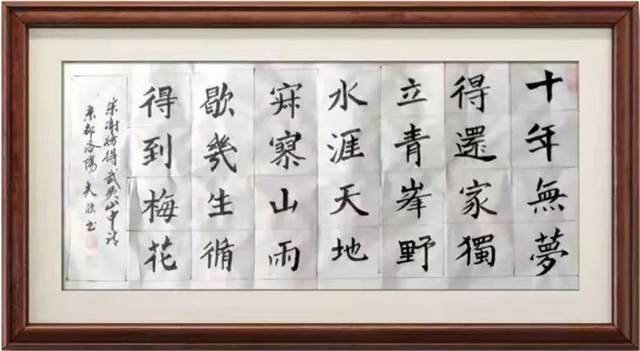 十年無夢
得還家獨
立青峯野
水涯天地
寂寥山雨
歇幾生脩
得到梅花
宋謝枋得武夷山中詩
東都洛陽